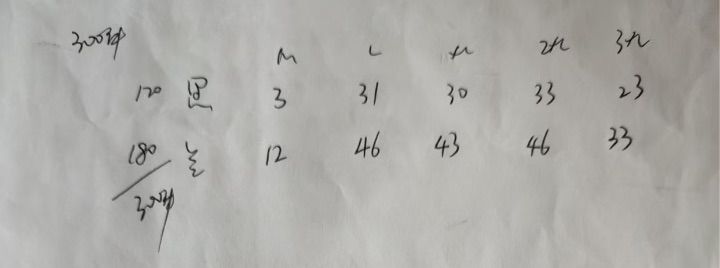 300件
M L XL 2XL 3XL
120 黑 3 31 30 33 23
180 12 46 43 46 33
300件